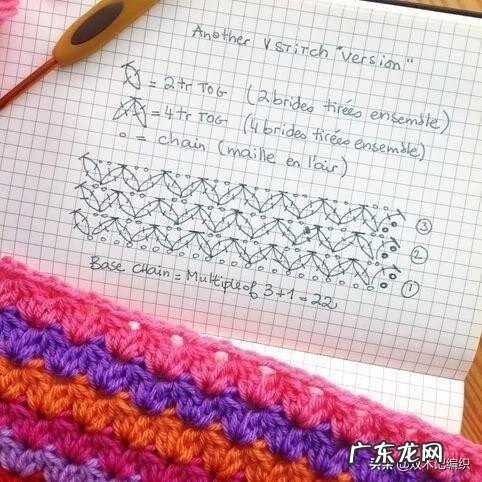 Another V STITCH "version"
= 2 tr TOG (2 brides tirées ensemble)
= 4 tr TOG (4 brides tirées ensemble)
o = chain (maille en l'air)
③
②
①
Base chain = Multiple of 3 + 1 = 22
广东龙网
头条 @双木记编织